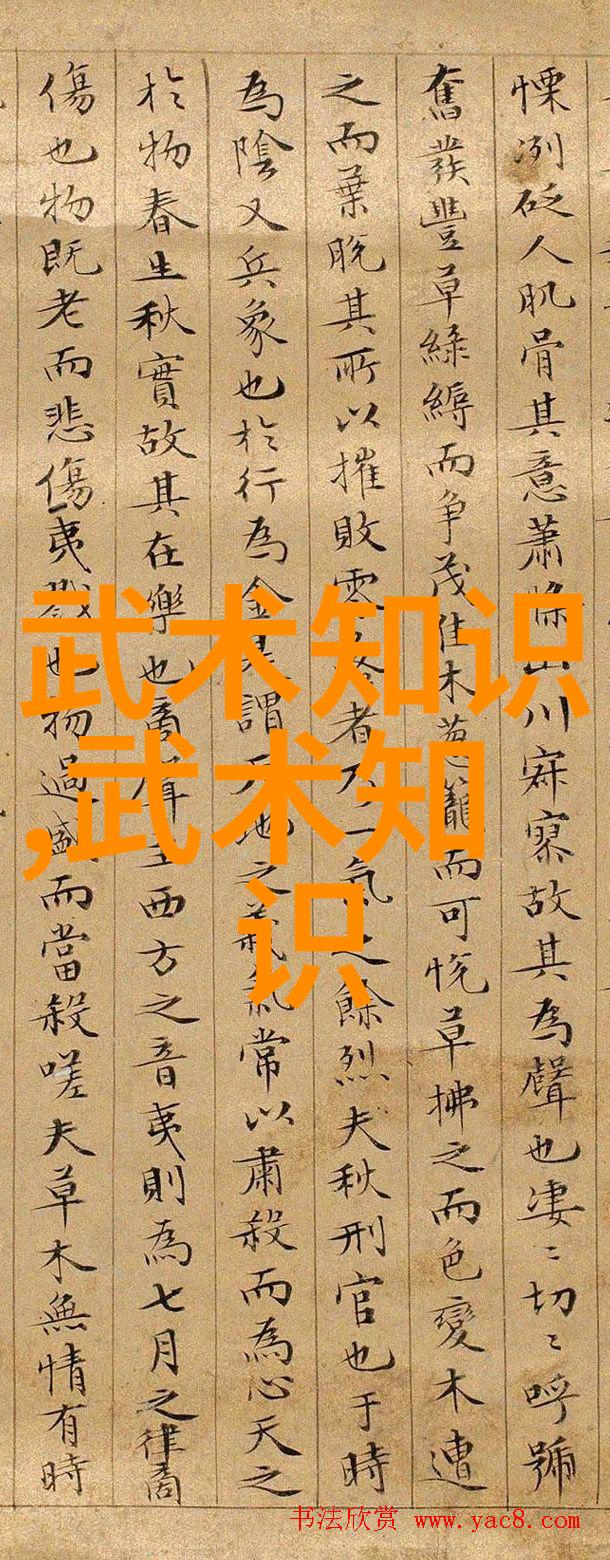 慄冽砭人肌骨其意蕭條山川寂寥故其為聲也凄〻切〻呼號
奮發豐草綠縟而争茂佳木葱籠而可悅草拂之而色變木遭
之而葉脫其所以摧敗零落者乃一氣之餘烈夫秋刑官也于時
為陰又兵象也於行為金是謂天地之義氣常以肅殺而為心天之
於物春生秋實故其在樂也商聲主西方之音夷則為七月之律商
傷也物既老而悲傷夷戮也物過盛而當殺嗟夫草木無情有時
武术知识
,武术知
识
书法欣赏 www.yac8.com